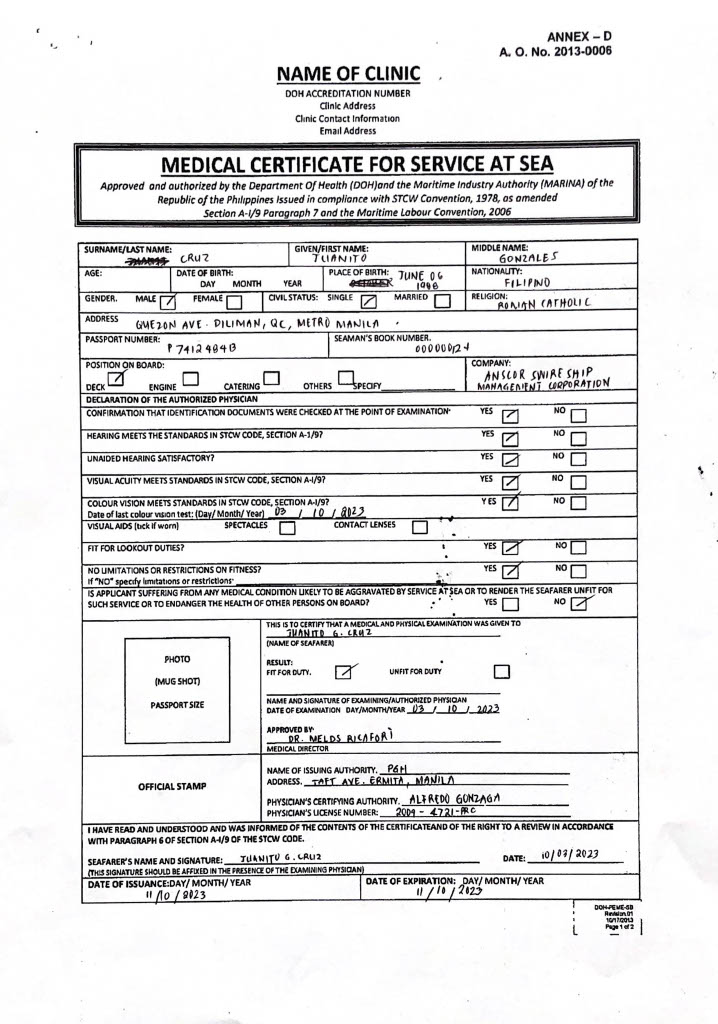 ANNEX – D
A. O. No. 2013-0006
NAME OF CLINIC
DOH ACCREDITATION NUMBER
Clinic Address
Clinic Contact Information
Email Address
MEDICAL CERTIFICATE FOR SERVICE AT SEA
Approved and authorized by the Department Of Health (DOH)and the Maritime Industry Authority (MARINA) of the
Republic of the Philippines Issued in compliance with STCW Convention, 1978, as amended
Section A-I/9 Paragraph 7 and the Maritime Labour Convention, 2006
SURNAME/LAST NAME: GIVEN/FIRST NAME: MIDDLE NAME:
CRUZ JUANITO GONZALES
AGE: DATE OF BIRTH: PLACE OF BIRTH: JUNE 06 NATIONALITY:
DAY MONTH YEAR 1998 FILIPINO
GENDER. MALE FEMALE CIVIL STATUS: SINGLE MARRIED RELIGION:
ROMAN CATHOLIC
ADDRESS
QUEZON AVE. DILIMAN, QC, METRO MANILA
PASSPORT NUMBER: SEAMAN'S BOOK NUMBER.
P7412484B
POSITION ON BOARD: COMPANY:
DECK ENGINE CATERING OTHERS SPECIFY ANSCOR SWIRE SHIP
MANAGEMENT CORPORATION
DECLARATION OF THE AUTHORIZED PHYSICIAN
CONFIRMATION THAT IDENTIFICATION DOCUMENTS WERE CHECKED AT THE POINT OF EXAMINATION· YES NO
HEARING MEETS THE STANDARDS IN STCW CODE, SECTION A-1/9? YES NO
UNAIDED HEARING SATISFACTORY? YES NO
VISUAL ACUITY MEETS STANDARDS IN STCW CODE, SECTION A-I/9? YES NO
COLOUR VISION MEETS STANDARDS IN STCW CODE, SECTION A-I/9? YES NO
Date of last colour vision test: (Day/ Month/ Year) 03 / 10 / 2023
VISUAL AIDS (tick if worn) SPECTACLES CONTACT LENSES
FIT FOR LOOKOUT DUTIES? YES NO
NO LIMITATIONS OR RESTRICTIONS ON FITNESS? YES NO
If "NO" specify limitations or restrictions·
IS APPLICANT SUFFERING FROM ANY MEDICAL CONDITION LIKELY TO BE AGGRAVATED BY SERVICE AT SEA OR TO RENDER THE SEAFARER UNFIT FOR
SUCH SERVICE OR TO ENDANGER THE HEALTH OF OTHER PERSONS ON BOARD? YES NO
PHOTO
(MUG SHOT)
PASSPORT SIZE
THIS IS TO CERTIFY THAT A MEDICAL AND PHYSICAL EXAMINATION WAS GIVEN TO
JUANITO G. CRUZ
(NAME OF SEAFARER)
RESULT:
FIT FOR DUTY. UNFIT FOR DUTY
NAME AND SIGNATURE OF EXAMINING/AUTHORIZED PHYSICIAN
DATE OF EXAMINATION DAY/MONTH/YEAR 03 / 10 / 2023
APPROVED BY·
DR. MELDS RICAFORT
MEDICAL DIRECTOR
OFFICIAL STAMP
NAME OF ISSUING AUTHORITY. PGH
ADDRESS. TAFT AVE. ERMITA, MANILA
PHYSICIAN'S CERTIFYING AUTHORITY. ALFREDO GONZAGA
PHYSICIAN'S LICENSE NUMBER: 2009 - 4721-PRC
I HAVE READ AND UNDERSTOOD AND WAS INFORMED OF THE CONTENTS OF THE CERTIFICATEAND OF THE RIGHT TO A REVIEW IN ACCORDANCE
WITH PARAGRAPH 6 OF SECTION A-I/9 OF THE STCW CODE.
SEAFARER'S NAME AND SIGNATURE: JUANITO G. CRUZ DATE: 10/03/2023
(THIS SIGNATURE SHOULD BE AFFIXED IN THE PRESENCE OF THE EXAMINING PHYSICIAN)
DATE OF ISSUANCE:DAY/ MONTH/ YEAR DATE OF EXPIRATION: DAY/ MONTH/ YEAR
11/10/2023 11/10/2023
DOH-PEME-SB
Revision.01
10/17/2013
Page 1 of 2